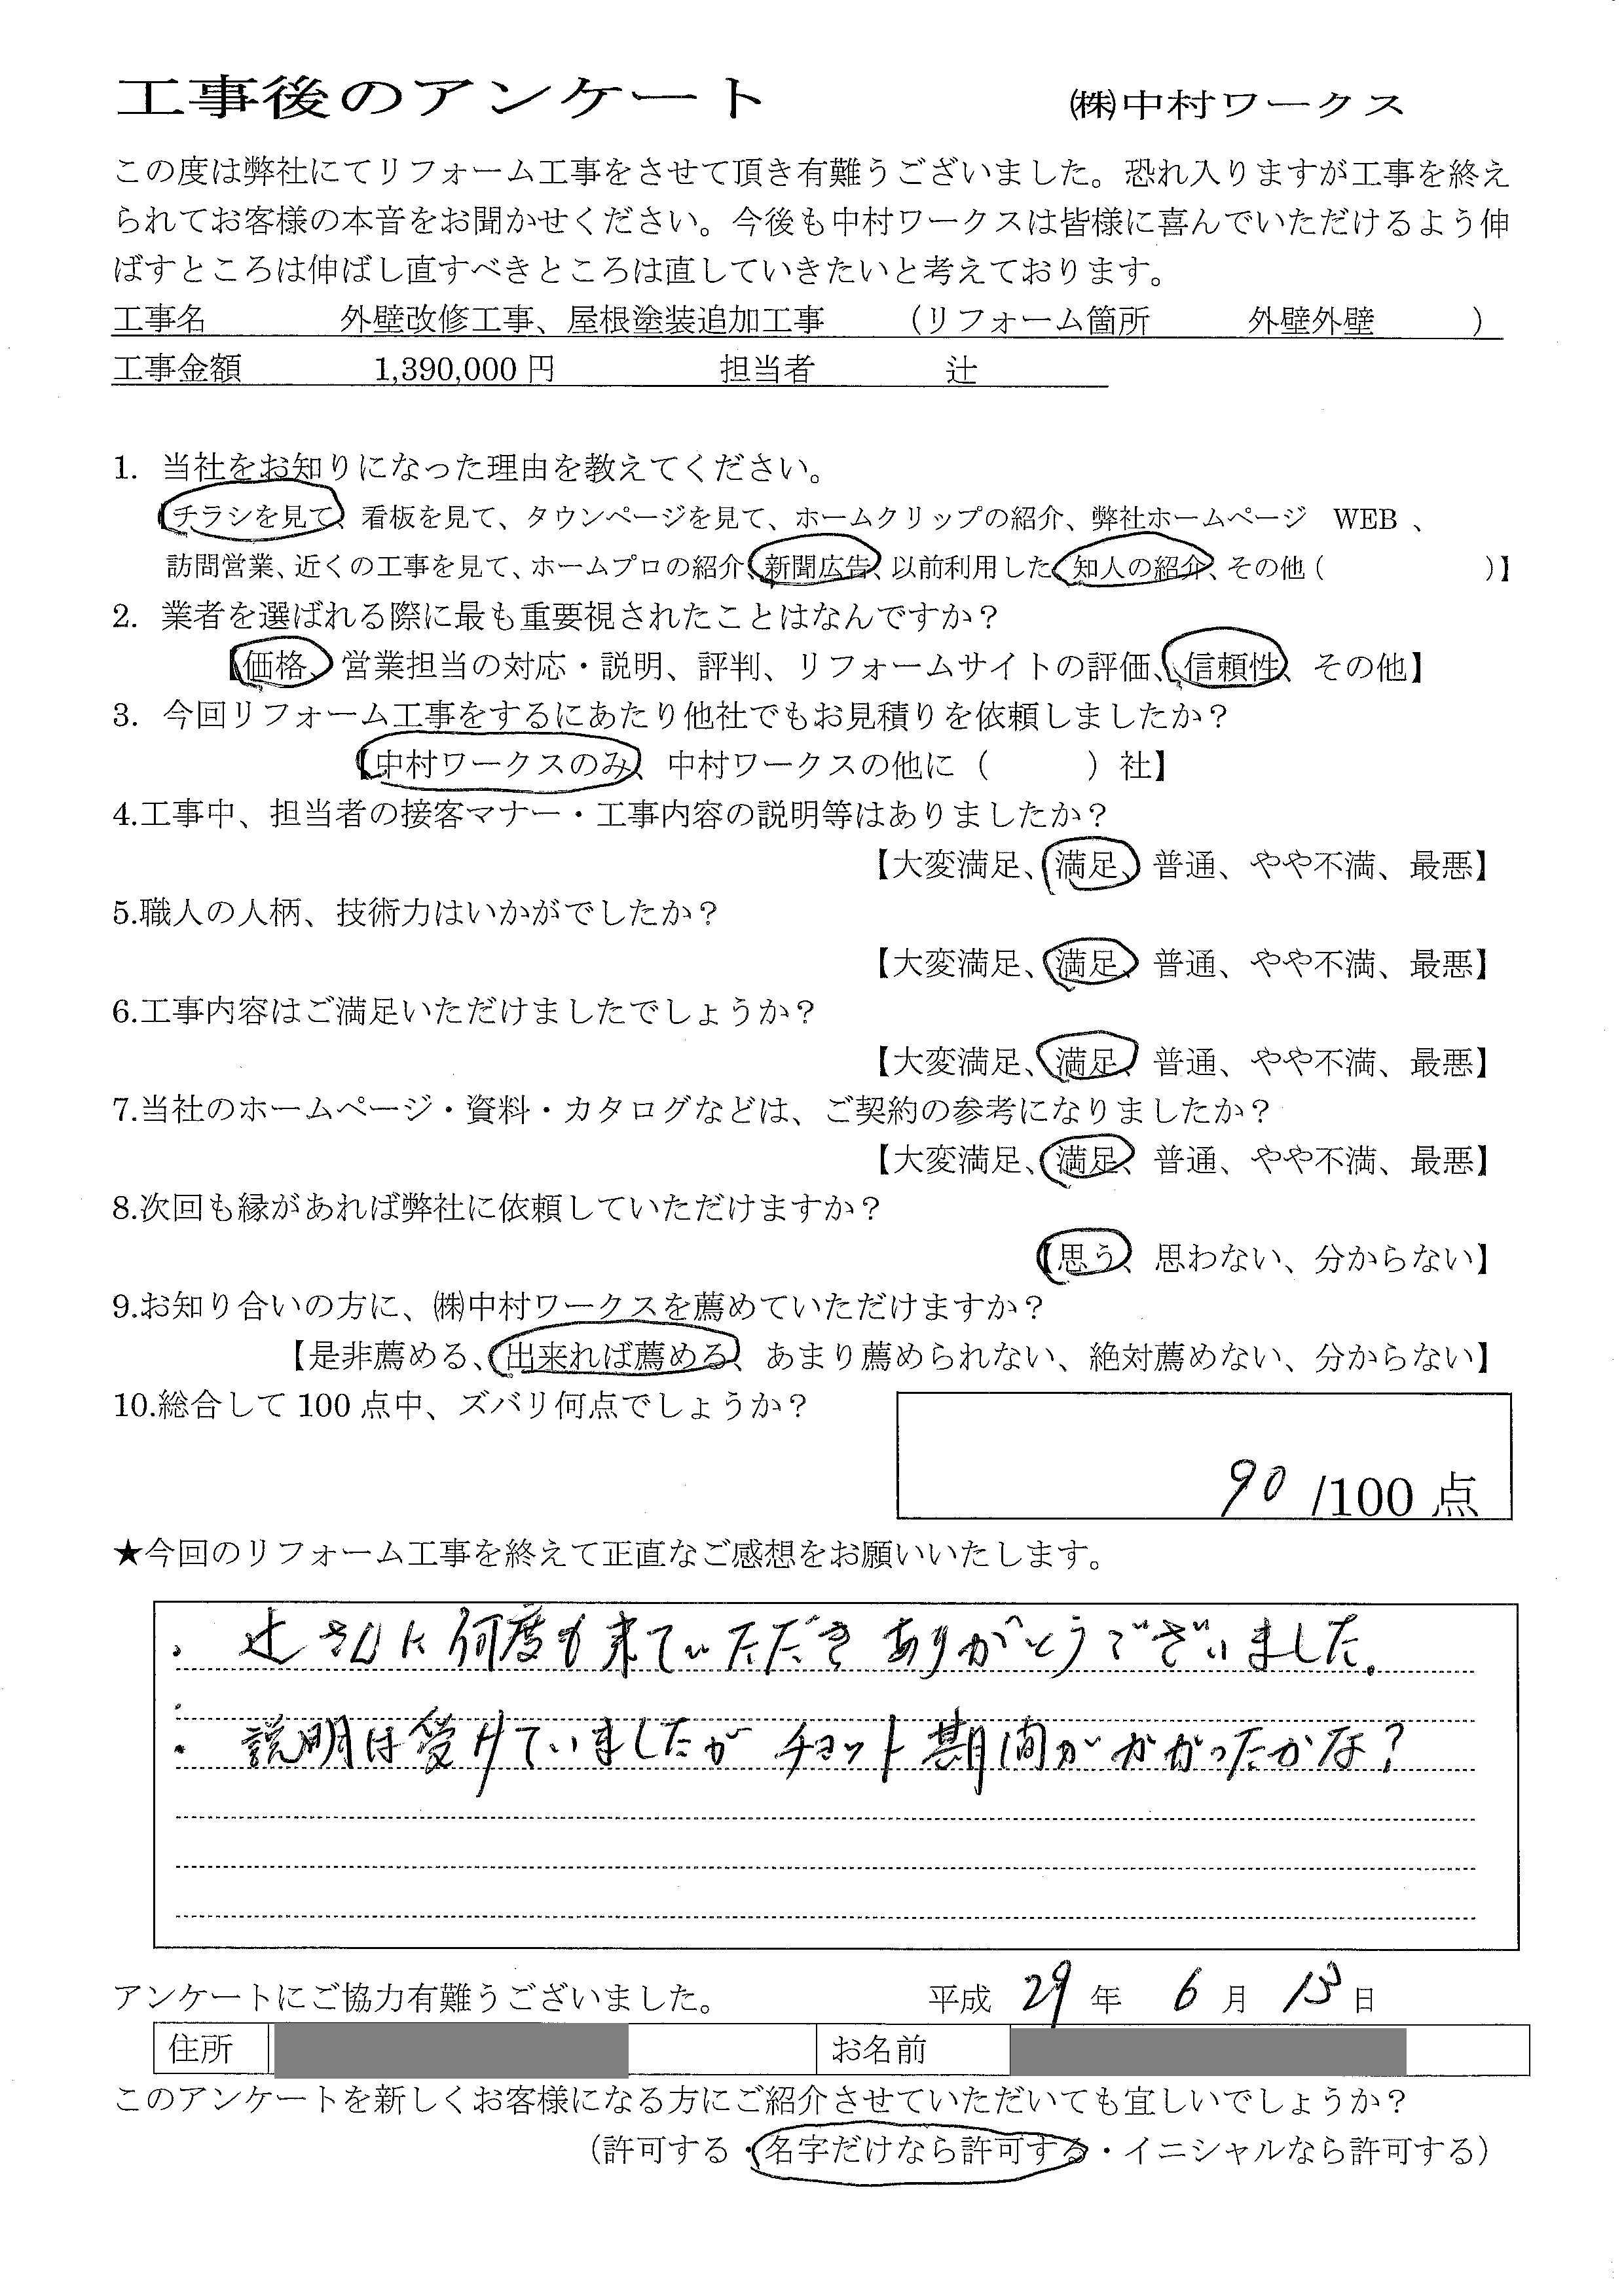 工事後のアンケート ㈱中村ワークス
この度は弊社にてリフォーム工事をさせて頂き有難うございました。恐れ入りますが工事を終え
られてお客様の本音をお聞かせください。今後も中村ワークスは皆様に喜んでいただけるよう伸
ばすところは伸ばし直すべきところは直していきたいと考えております。
工事名 外壁改修工事、屋根塗装追加工事 （リフォーム箇所 外壁外壁 ）
工事金額 1,390,000 円 担当者 辻
1. 当社をお知りになった理由を教えてください。
【チラシを見て、看板を見て、タウンページを見て、ホームクリップの紹介、弊社ホームページ WEB 、
訪問営業、近くの工事を見て、ホームプロの紹介、新聞広告、以前利用した、知人の紹介、その他（ ）】
2. 業者を選ばれる際に最も重要視されたことはなんですか？
【価格、営業担当の対応・説明、評判、リフォームサイトの評価、信頼性、その他】
3. 今回リフォーム工事をするにあたり他社でもお見積りを依頼しましたか？
【中村ワークスのみ、中村ワークスの他に（ ）社】
4.工事中、担当者の接客マナー・工事内容の説明等はありましたか？
【大変満足、満足、普通、やや不満、最悪】
5.職人の人柄、技術力はいかがでしたか？
【大変満足、満足、普通、やや不満、最悪】
6.工事内容はご満足いただけましたでしょうか？
【大変満足、満足、普通、やや不満、最悪】
7.当社のホームページ・資料・カタログなどは、ご契約の参考になりましたか？
【大変満足、満足、普通、やや不満、最悪】
8.次回も縁があれば弊社に依頼していただけますか？
【思う、思わない、分からない】
9.お知り合いの方に、㈱中村ワークスを薦めていただけますか？
【是非薦める、出来れば薦める、あまり薦められない、絶対薦めない、分からない】
10.総合して 100 点中、ズバリ何点でしょうか？
90 /100 点
★今回のリフォーム工事を終えて正直なご感想をお願いいたします。
・辻さんに何度も来ていただき ありがとうございました。
・説明は受けていましたが チョット期間がかかったかな？
アンケートにご協力有難うございました。 平成 29 年 6 月 13 日
住所 お名前
このアンケートを新しくお客様になる方にご紹介させていただいても宜しいでしょうか？
（許可する・名字だけなら許可する・イニシャルなら許可する）